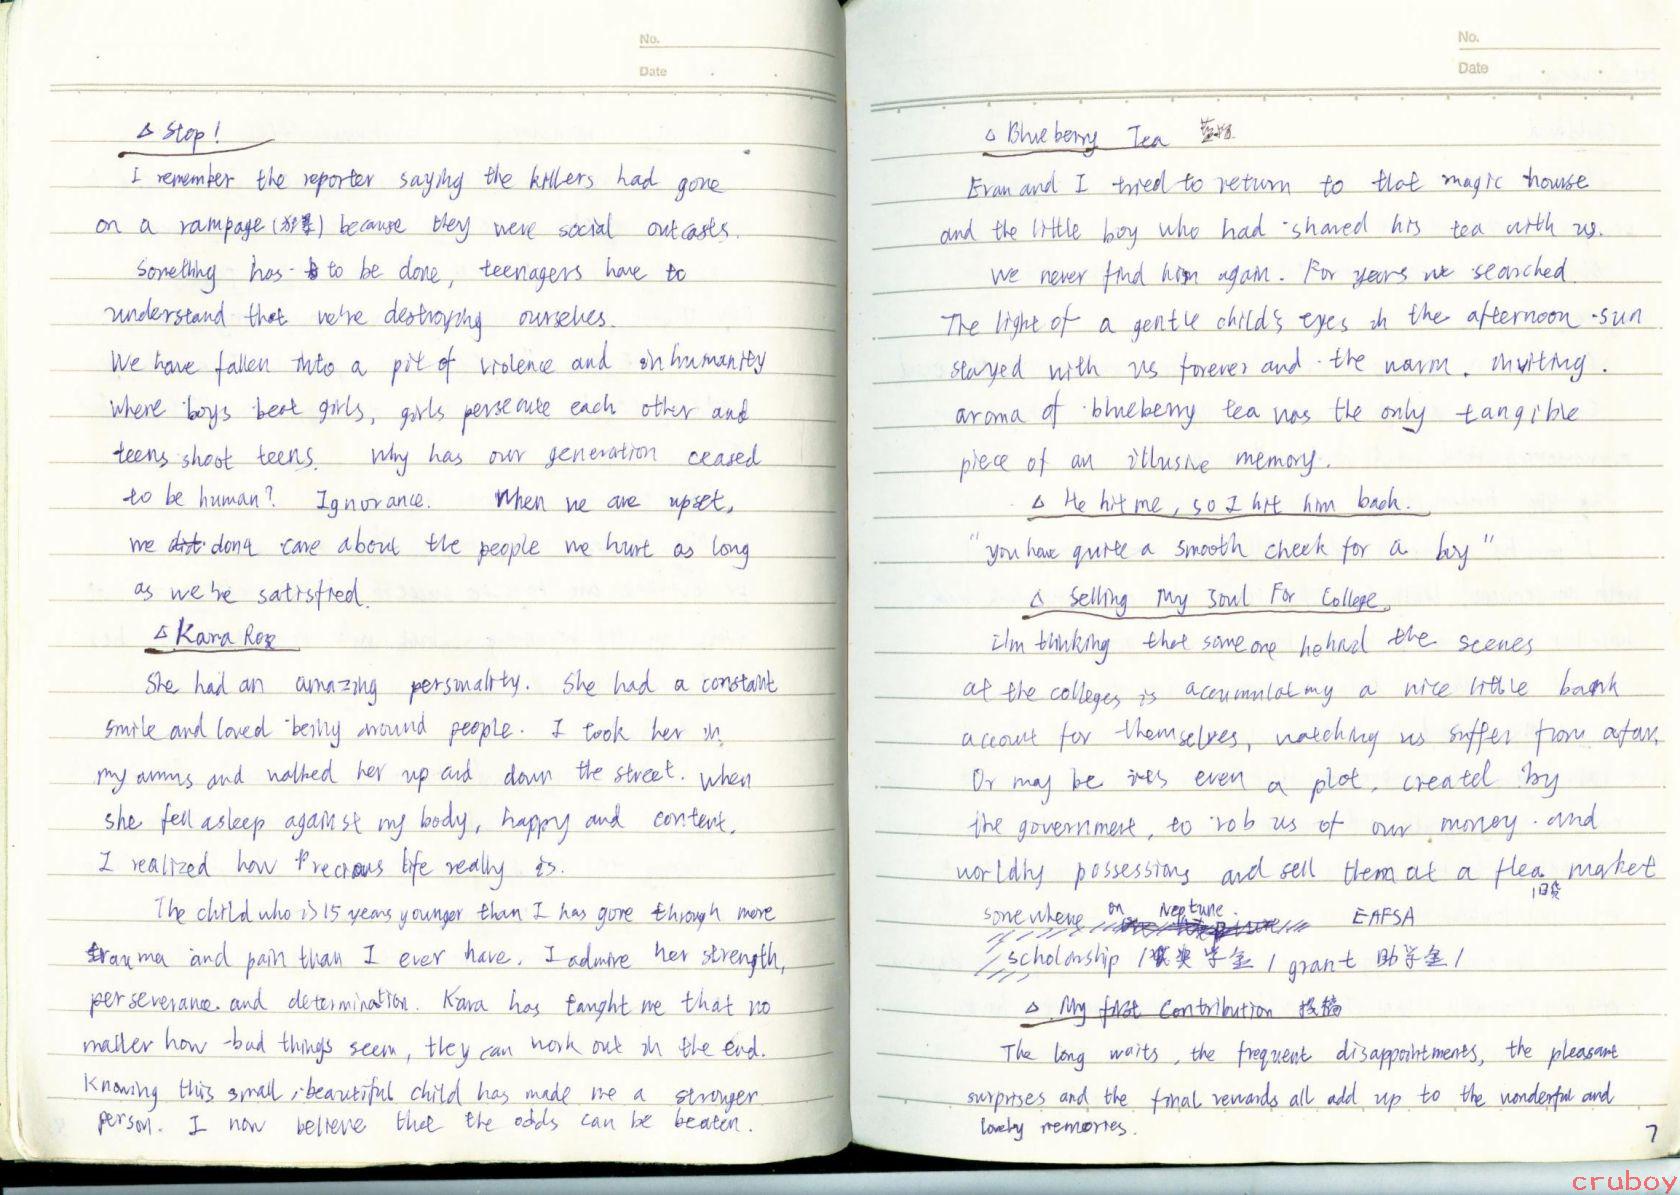 No.
Date
△ Stop!
I remember the reporter saying the killers had gone
on a rampage () because they were social outcasts.
Something has to be done, teenagers have to
understand that we're destroying ourselves.
We have fallen into a pit of violence and inhumanity
where boys beat girls, girls persecute each other and
teens shoot teens. Why has our generation ceased
to be human? Ignorance. When we are upset,
we don't care about the people we hurt as long
as we're satisfied.
△ Kara Rox
She had an amazing personality. She had a constant
smile and loved being around people. I took her in
my arms and walked her up and down the street. When
she fell asleep against my body, happy and content,
I realized how precious life really is.
The child who is 15 years younger than I has gone through more
trauma and pain than I ever have. I admire her strength,
perseverance and determination. Kara has taught me that no
matter how bad things seem, they can work out in the end.
Knowing this small, beautiful child has made me a stronger
person. I now believe that the odds can be beaten.
No.
Date
△ Blueberry Tea
Evan and I tried to return to that magic house
and the little boy who had shared his tea with us.
We never find him again. For years we searched.
The light of a gentle child's eyes in the afternoon sun
stayed with us forever and the warm, inviting
aroma of blueberry tea was the only tangible
piece of an illusive memory.
△ He hit me, so I hit him back.
"you have quite a smooth cheek for a boy"
△ Selling My Soul For College
I'm thinking that someone behind the scenes
at the colleges is accumulating a nice little bank
account for themselves, watching us suffer from afar.
Or maybe it's even a plot, created by
the government, to rob us of our money and
worldly possessions and sell them at a flea market
旧货
somewhere on Neptune. EAFSA
scholarship /奖学金/ grant 助学金/
△ My first Contribution 投稿
The long waits, the frequent disappointments, the pleasant
surprises and the final rewards all add up to the wonderful and
lovely memories.
7
cruboy